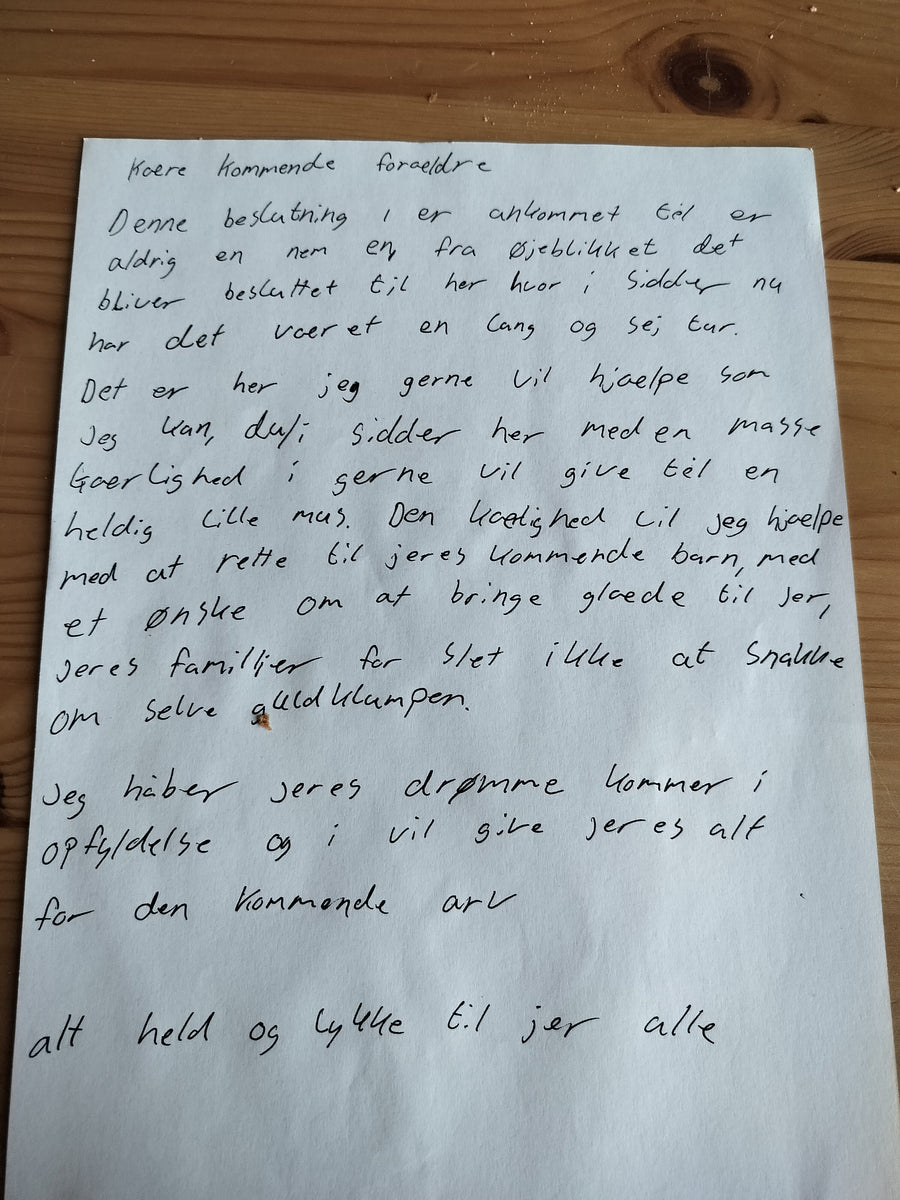 Kære kommende forældre
Denne beslutning i er ankommet til er
aldrig en nem en, fra øjeblikket det
bliver besluttet til her hvor i sidder nu
har det været en lang og sej tur.
Det er her jeg gerne vil hjælpe som
jeg kan, du/i sidder her med en masse
kærlighed i gerne vil give til en
heldig lille mus. Den kærlighed vil jeg hjælpe
med at rette til jeres kommende barn, med
et ønske om at bringe glæde til jer,
jeres familier for slet ikke at snakke
om selve guldklumpen.
Jeg håber jeres drømme kommer i
opfyldelse og i vil give jeres alt
for den kommende arv
alt held og lykke til jer alle